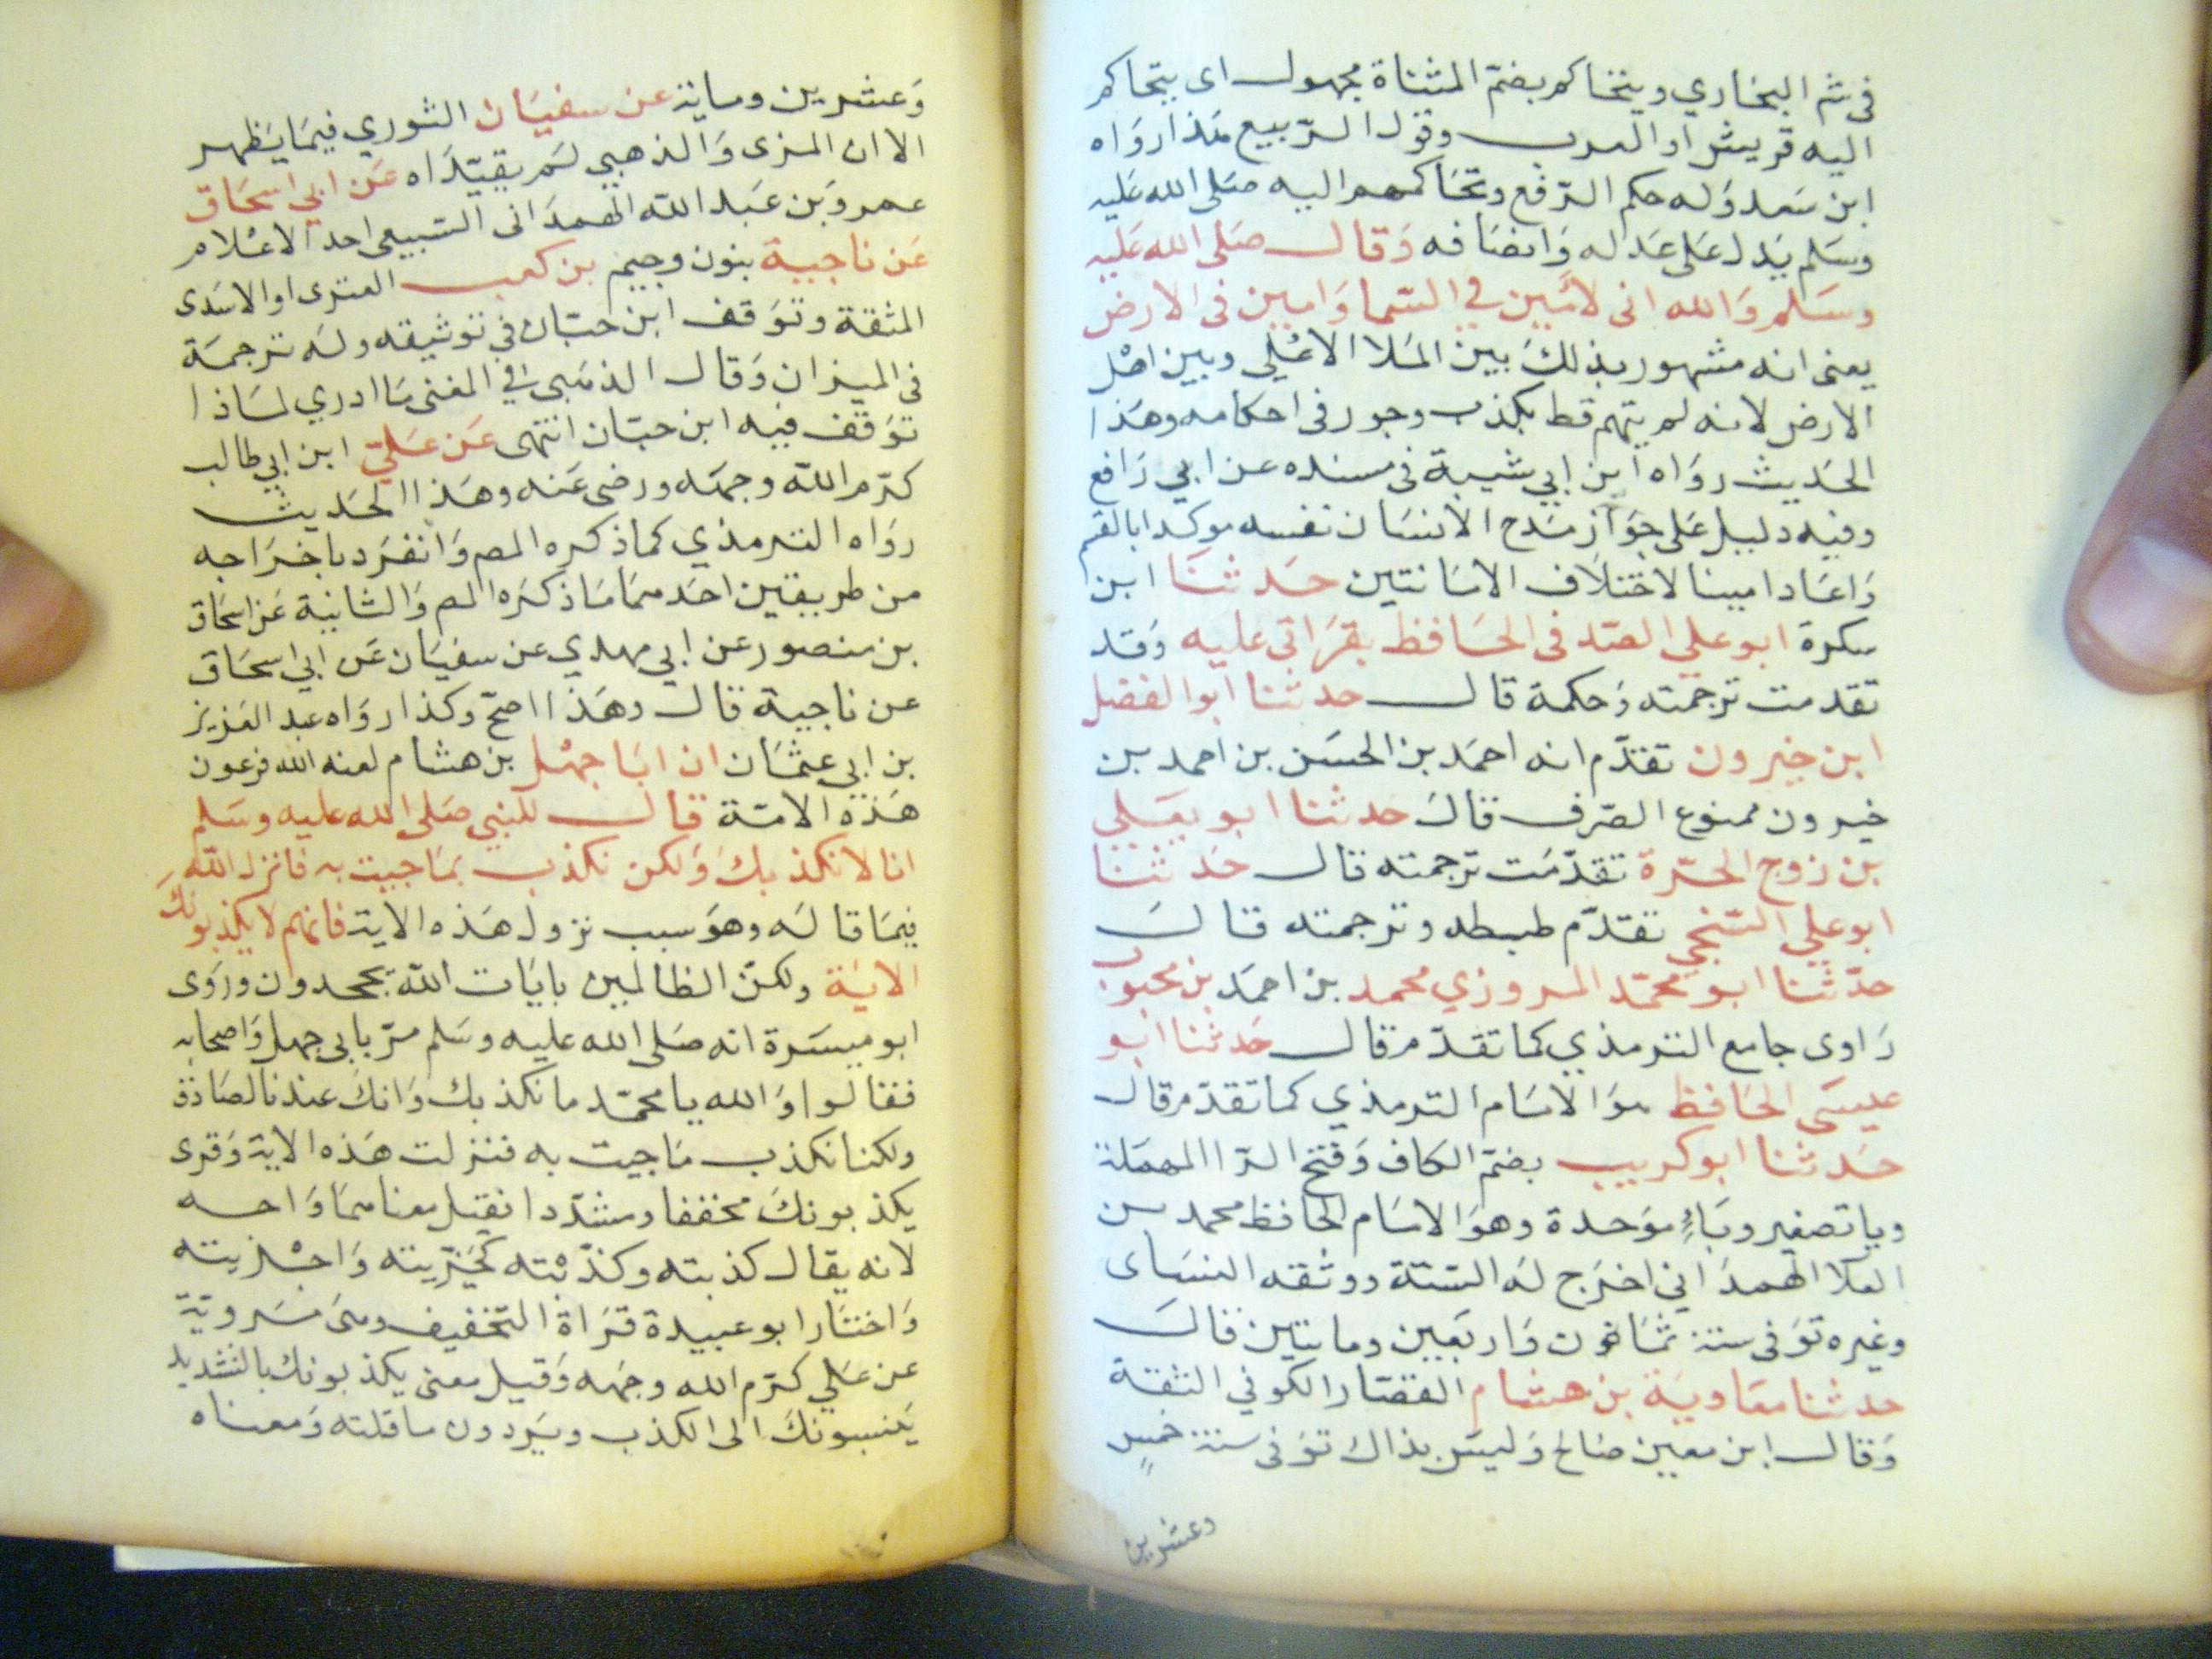 فى شم البخاري ويتحاكم بضم المثناة مجهول اى يتحاكم
اليه قريش او العرب وقول الربيع هذا رواه
ابن سعد وله حكم الرفع وتحاكمهم اليه صلى الله عليه
وسلم يدل على عدله وانصافه وقال صلى الله عليه
وسلم والله انى لامين في السما وامين فى الارض
يعنى انه مشهور بذلك بين الملا الاعلى وبين اهل
الارض لانه لم يتهم قط بكذب وجور فى احكامه وهذا
الحديث رواه ابن ابي شيبة فى مسنده عن ابي رافع
وفيه دليل على جواز مدح الانسان نفسه موكدا بالقسم
واعاد امينا لاختلاف الامانتين حدثنا ابن
سكرة ابو علي الصدفى الحافظ بقراتى عليه وقد
تقدمت ترجمته وحكمة قال حدثنا ابو الفضل
ابن خيرون تقدم انه احمد بن الحسن بن احمد بن
خيرون ممنوع الصرف قال حدثنا ابو يعلي
بن زوج الحرة تقدمت ترجمته قال حدثنا
ابو علي السنجي تقدم ضبطه وترجمته قال
حدثنا ابو محمد المروزي محمد بن احمد بن محبوب
راوى جامع الترمذي كما تقدم قال حدثنا ابو
عيسى الحافظ هو الامام الترمذي كما تقدم قال
حدثنا ابو كريب بضم الكاف وفتح الرا المهملة
ويا تصغير وباء موحدة وهو الامام الحافظ محمد بن
العلا الهمداني اخرج له الستة ووثقه النساى
وغيره توفى سنة ثمان واربعين ومايتين قال
حدثنا معاوية بن هشام القصار الكوفي الثقة
وقال ابن معين صالح وليس بذاك توفى سنة خمس
وعشرين
وعشرين وماية عن سفيان الثوري فيما يظهر
الا ان المزى والذهبي لم يقيداه عن ابي اسحاق
عمرو بن عبد الله الهمدانى السبيعى احد الاعلام
عن ناجية بنون وجيم بن كعب العنزى او الاسدى
الثقة وتوقف ابن حبان في توثيقه وله ترجمة
فى الميزان وقال الذهبى في المغنى ما ادري لماذا
توقف فيه ابن حبان انتهى عن علي ابن ابي طالب
كرم الله وجهه ورضى عنه وهذا الحديث
رواه الترمذي كما ذكره المص وانفرد باخراجه
من طريقين احدهما ما ذكره المص والثانية عن اسحاق
بن منصور عن ابي مهدي عن سفيان عن ابي اسحاق
عن ناجية قال وهذا اصح وكذا رواه عبد العزيز
بن ابي عثمان ان ابا جهل بن هشام لعنه الله فرعون
هذه الامة قال للنبي صلى الله عليه وسلم
انا لا نكذبك ولكن نكذب بما جيت به فانزل الله
فيما قاله وهو سبب نزول هذه الاية فانهم لا يكذبونك
الاية ولكن الظالمين بايات الله يجحدون وروى
ابو ميسرة انه صلى الله عليه وسلم مر بابى جهل واصحابه
فقالوا والله يا محمد ما نكذبك وانك عندنا لصادق
ولكنا نكذب ما جيت به فنزلت هذه الاية وقرى
يكذبونك مخففا ومشددا فقيل معناهما واحد
لانه يقال كذبته وكذبته كخزيته واخزيته
واختار ابو عبيدة قراة التخفيف وهى مروية
عن علي كرم الله وجهه وقيل معنى يكذبونك بالتشديد
ينسبونك الى الكذب ويردون ما قلته ومعناه